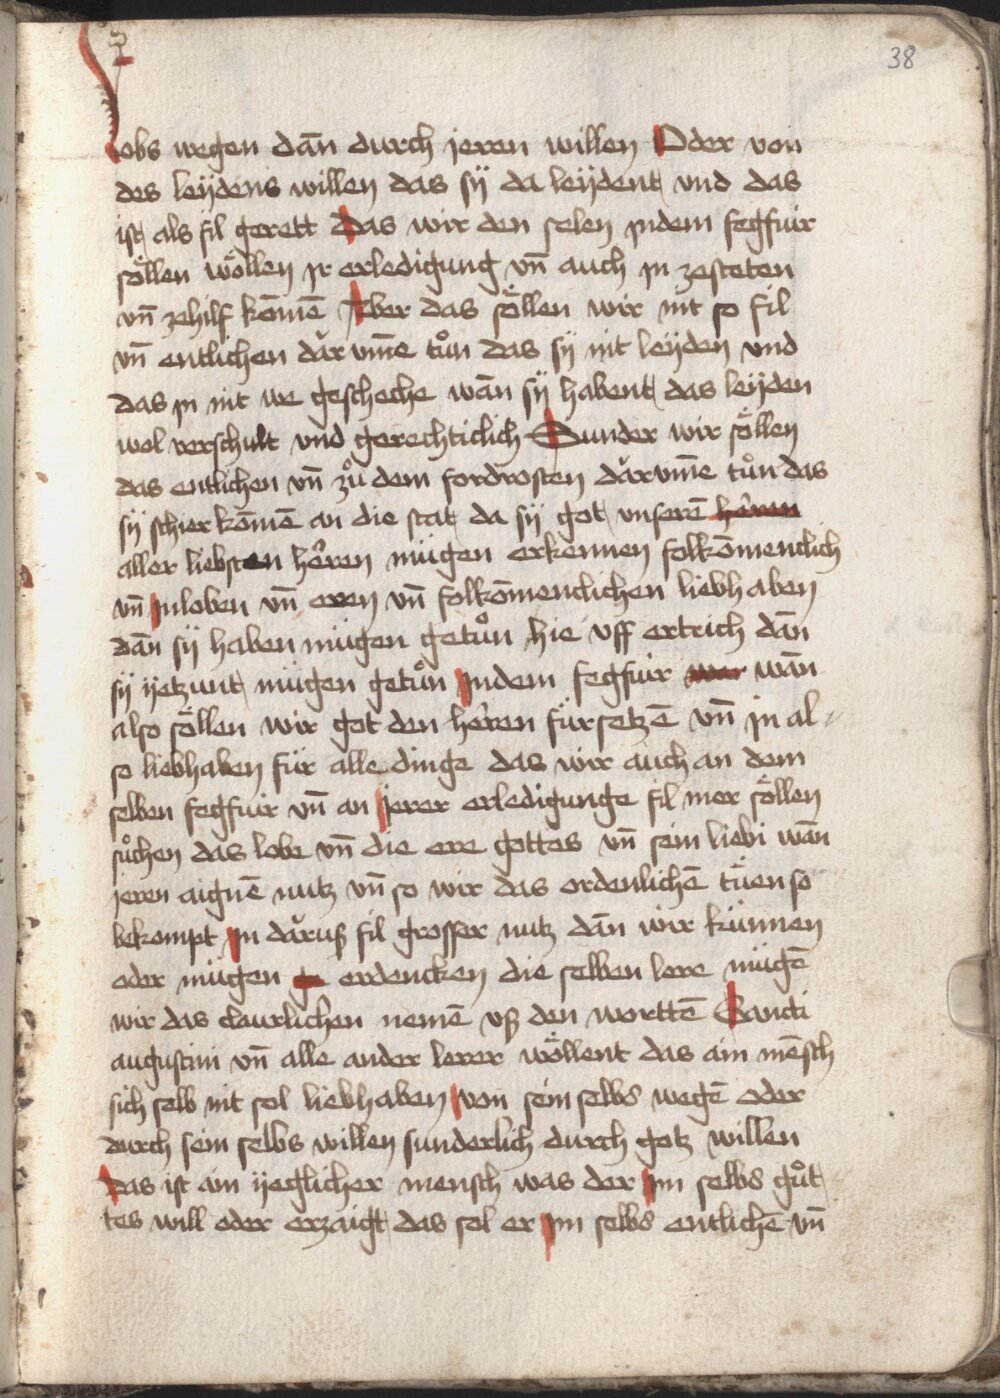 38
lobs wegen dañ durch jeren willen Oder von
des leÿdens willen das sÿ da leÿdent vnd das
ist als fil gerett Das wir den selen jndem fegfuir
söllen wöllen jr erledigung vñ auch jn zesteten
vñ zehilf kōmē Aber das söllen wir nit so fil
vñ entlichen dărvm̄e tůn das sÿ nit leÿden vnd
das jn nit we gescheche wañ sÿ habent das leÿden
wol verschult vnd gerechticlich Sunder wir söllen
das entlichen vñ zů dem fordrosten dărvm̄e tůn das
sÿ schier kōmē an die stat da sÿ got vnserē herren
aller liebsten herren mügen erkennen folkōmenclich
vñ jnloben vñ eren vñ folkōmenclichen liebhaben
dañ sÿ haben mügen getůn hie vff ertrich dañ
sÿ ÿetzunt mügen getůn jndem fegfuir war wañ
also söllen wir got den herren fürsetzē vñ jn al-
so liebhaben für alle dinge das wir auch an dem
selben fegfuir vñ an jerer erledigunge fil mer söllen
sůchen das lobe vñ die ere gottes vñ sein liebi wañ
jeren aignē nutz vñ so wir das ordenlichē tüen so
bekompt jn dăruß fil grosser nutz dañ wir künnen
oder mügen erdencken die selben lere mügē
wir das claurlichen nemē vß den worttē Sancti
augustini vñ alle ander lerer wöllent das ain mēsch
sich selb nit sol liebhaben von sein selbs wegē oder
durch sein selbs willen sunderlich durch gotz willen
Das ist ain ÿeglicher mensch was der jm selbs gůt
tes will oder erzaigt das sol er jm selbs entlichē vñ